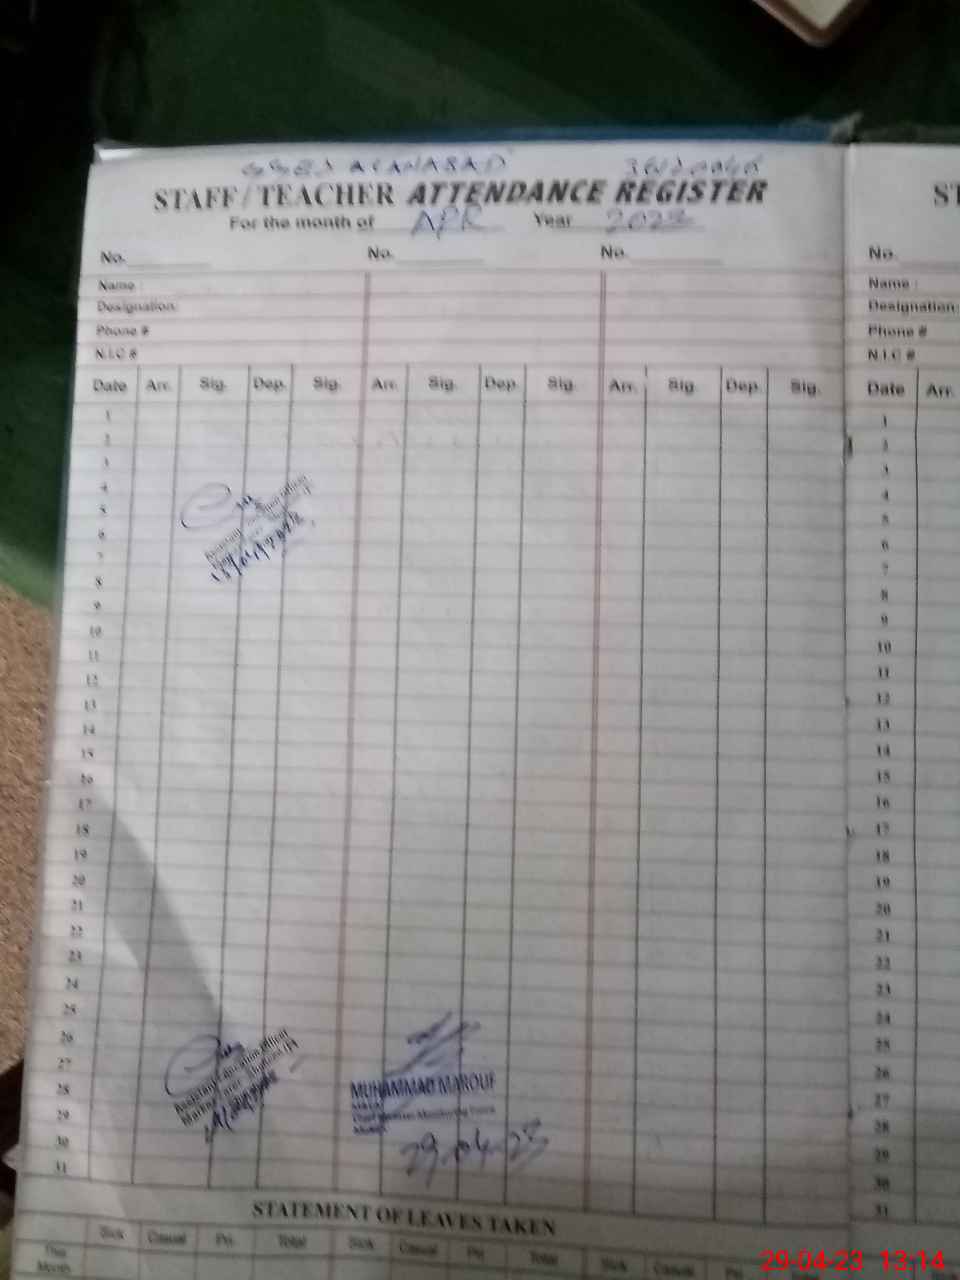 STAFF / TEACHER ATTENDANCE REGISTER
For the month of APR Year 2023
No. No. No.
Name :
Designation:
Phone #
N.I.C #
Date Arr. Sig. Dep. Sig. Arr. Sig. Dep. Sig. Arr. Sig. Dep. Sig.
1
2
3
4
5
6
7
8
9
10
11
12
13
14
15
16
17
18
19
20
21
22
23
24
25
26
27
28
29
30
31
Assistant Education Officer
Assistant Education Officer
MUHAMMAD MAROUF
29.04.23
STATEMENT OF LEAVES TAKEN
Sick Casual Pri. Total Sick Casual Pri. Total Sick Casual Pri.
This
Month
ST
No.
Name :
Designation:
Phone #
N.I.C #
Date Arr.
1
2
3
4
5
6
7
8
9
10
11
12
13
14
15
16
17
18
19
20
21
22
23
24
25
26
27
28
29
30
31
29-04-23 13:14